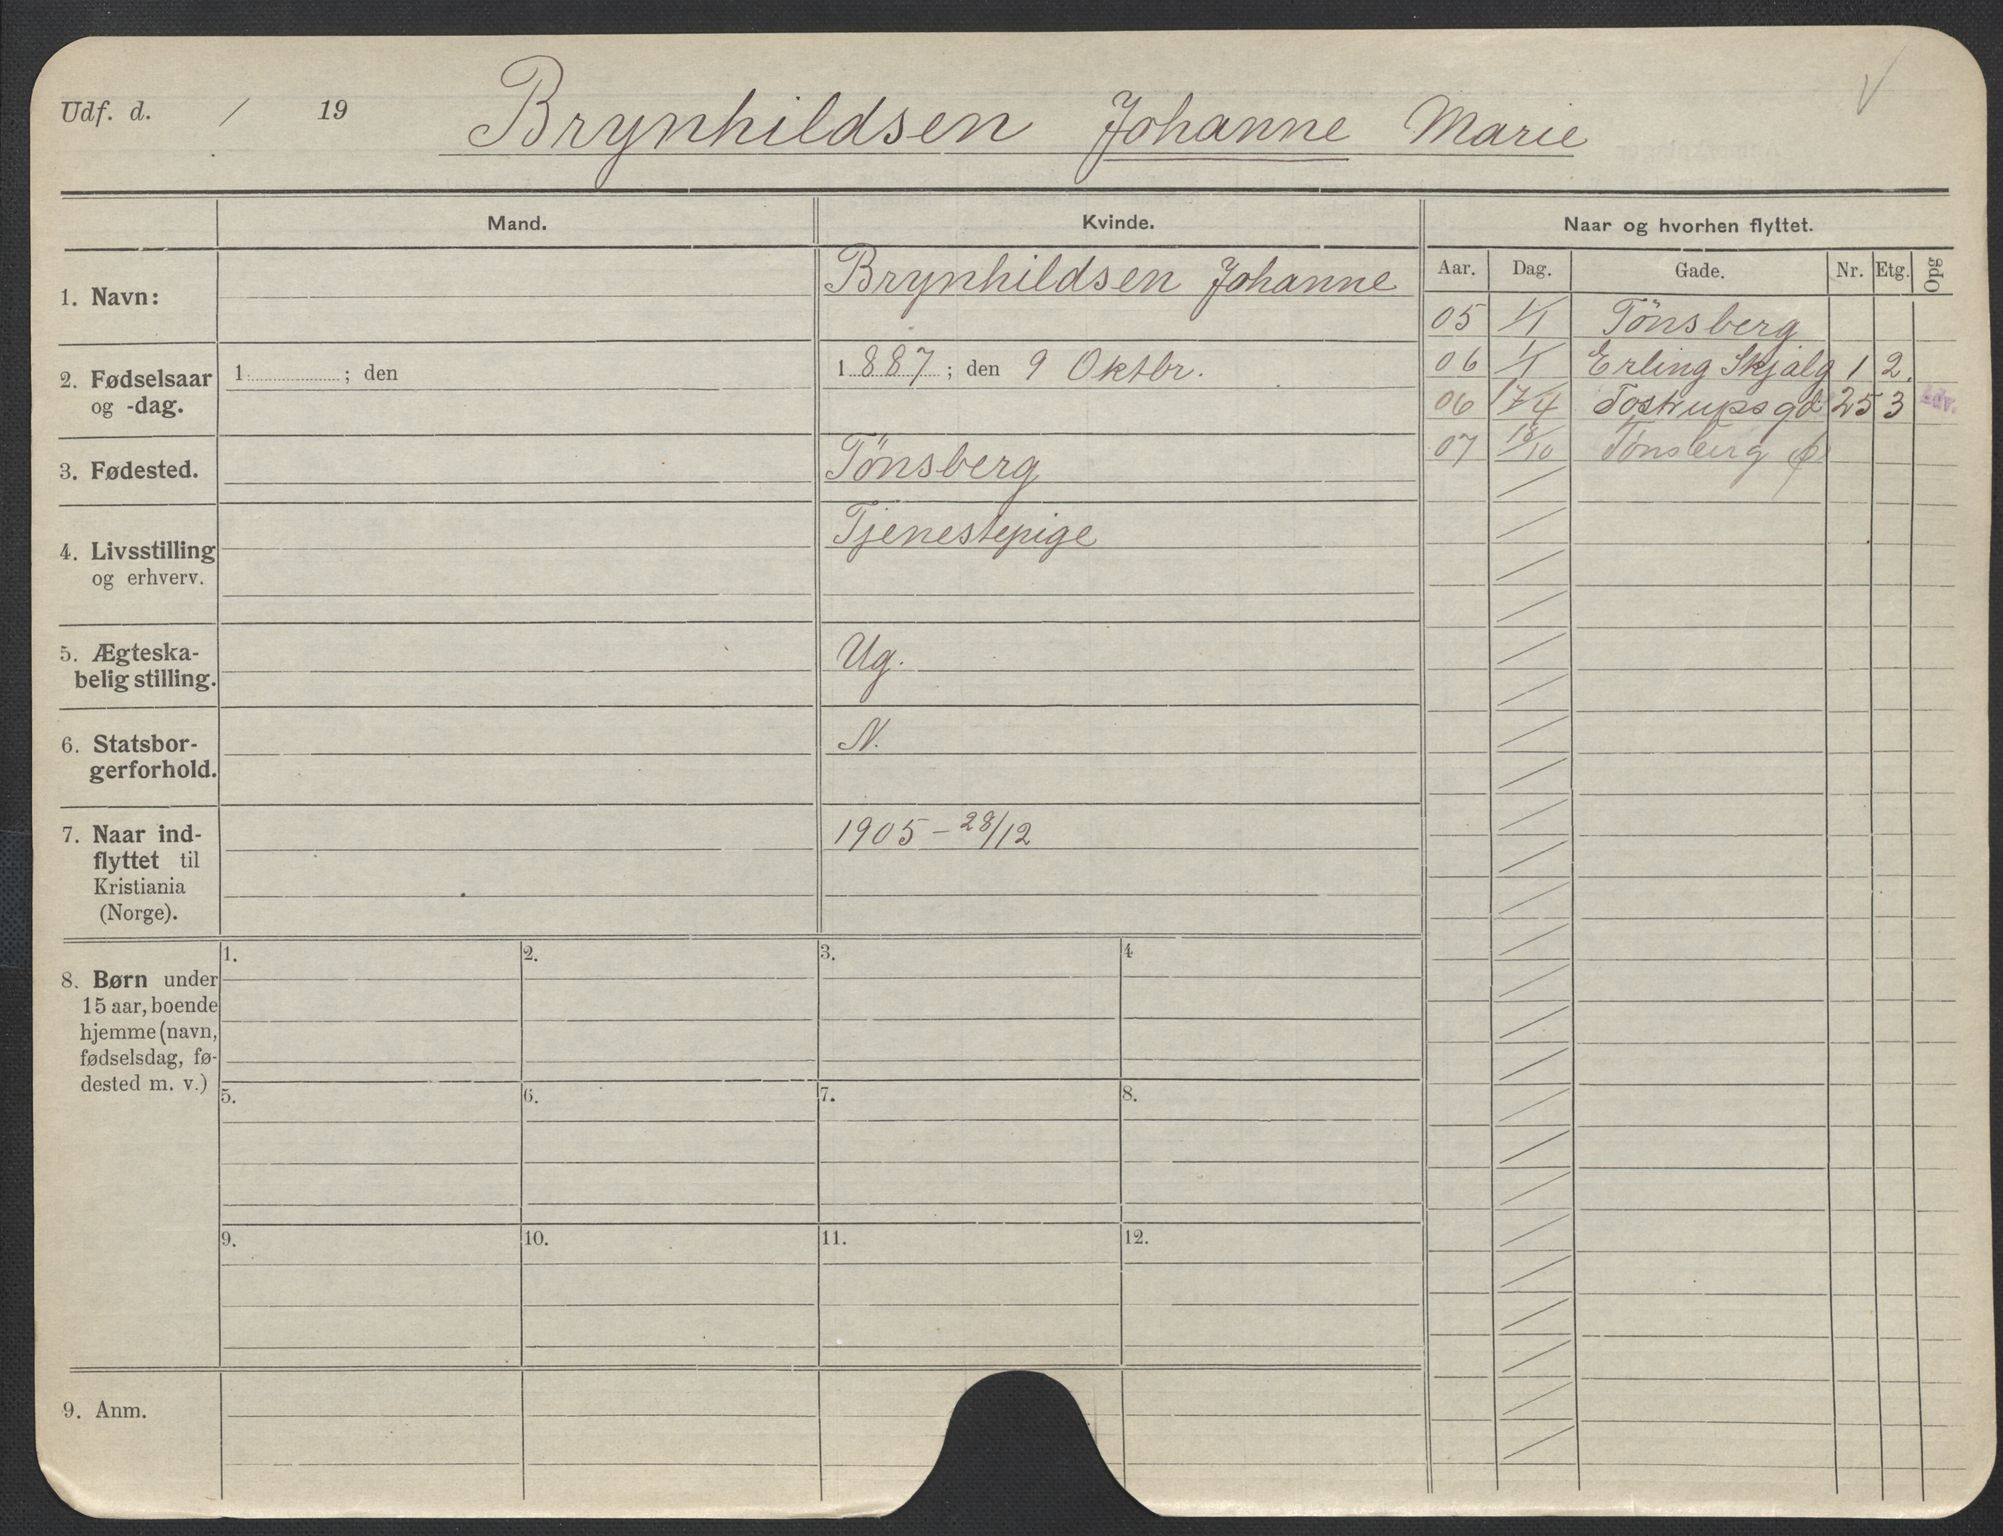 Udf. d. / 19 Brynhildsen Johanne Marie
Mand. Kvinde. Naar og hvorhen flyttet.
Aar. Dag. Gade. Nr. Etg. Opg
1. Navn: Brynhildsen Johanne
05 1/1 Tönsberg
06 1/1 Erling Skjalg 1 2.
06 17/4 Tostrupsgd 25 3
07 18/10 Tönsberg
2. Fødselsaar og -dag. 1 ; den 1 887 ; den 9 Oktbr.
3. Fødested. Tönsberg
4. Livsstilling og erhverv. Tjenestepige
5. Ægteska-
belig stilling. Ug.
6. Statsbor-
gerforhold. N.
7. Naar ind-
flyttet til
Kristiania
(Norge).
1905 – 28/12
8. Børn under
15 aar, boende
hjemme (navn,
fødselsdag, fø-
dested m. v.)
1. 2. 3. 4
5. 6. 7. 8.
9. 10. 11. 12.
9. Anm.